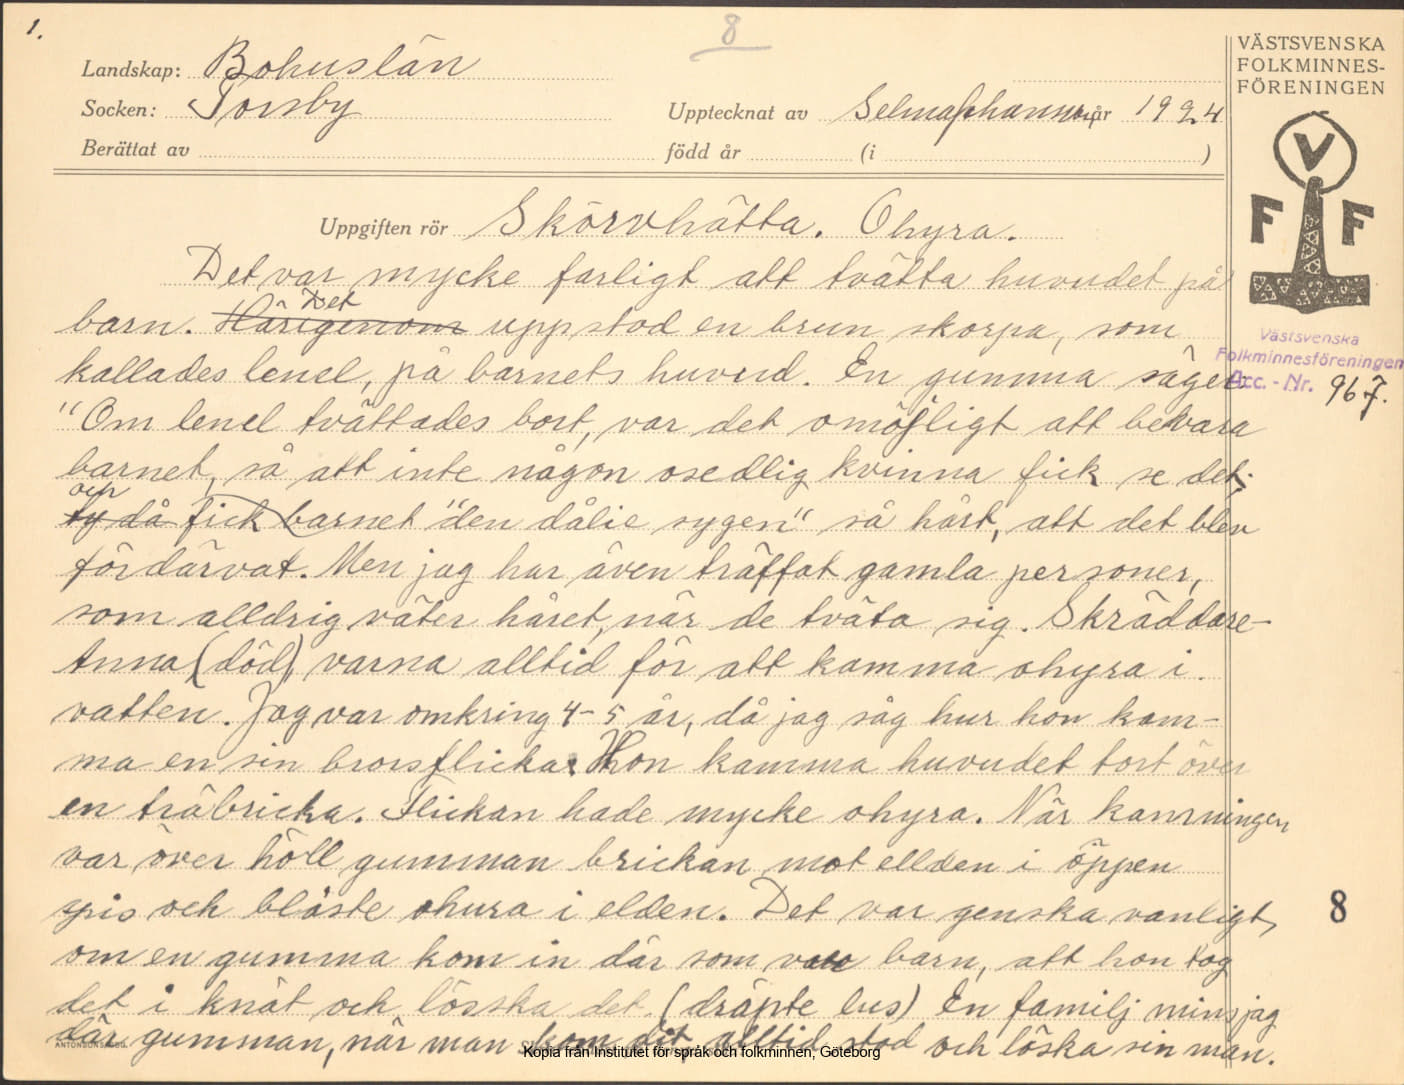 1.
8
Landskap: Bohuslän
Socken: Torsby
Upptecknat av Selma Johansson år 1924
Berättat av född år (i )
VÄSTSVENSKA
FOLKMINNES-
FÖRENINGEN
V
F F
Uppgiften rör Skörvhätta. Ohyra.
Det var mycke farligt att tvätta huvudet på
barn. Härigenom Det uppstod en brun skorpa, som
kallades lenel, på barnets huvud. En gumma säger
Västsvenska
Folkminnesföreningen
Acc.-Nr. 967.
"Om lenel tvättades bort, var det omöjligt att bevara
barnet, så att inte någon osedlig kvinna fick se det;
och
ty då fick barnet "den dålie sygen" så hårt, att det blev
fördärvat. Men jag har även träffat gamla personer,
som alldrig väter håret, när de tväta sig. Skräddare-
Anna (död), varna alltid för att kamma ohyra i
vatten. Jag var omkring 4-5 år, då jag såg hur hon kam-
ma en sin brorsflicka. Hon kamma huvudet tort över
en träbricka. Flickan hade mycke ohyra. När kamningen
var över höll gumman brickan mot ellden i öppen
spis och blåste ohura i elden. Det var genska vanligt,
om en gumma kom in där som var barn, att hon tog
det i knät och lösska det. (dräpte lus) En familj mins jag
där gumman, när man kom dit, alltid stod och löska sin man.
8
Kopia från Institutet för språk och folkminnen, Göteborg